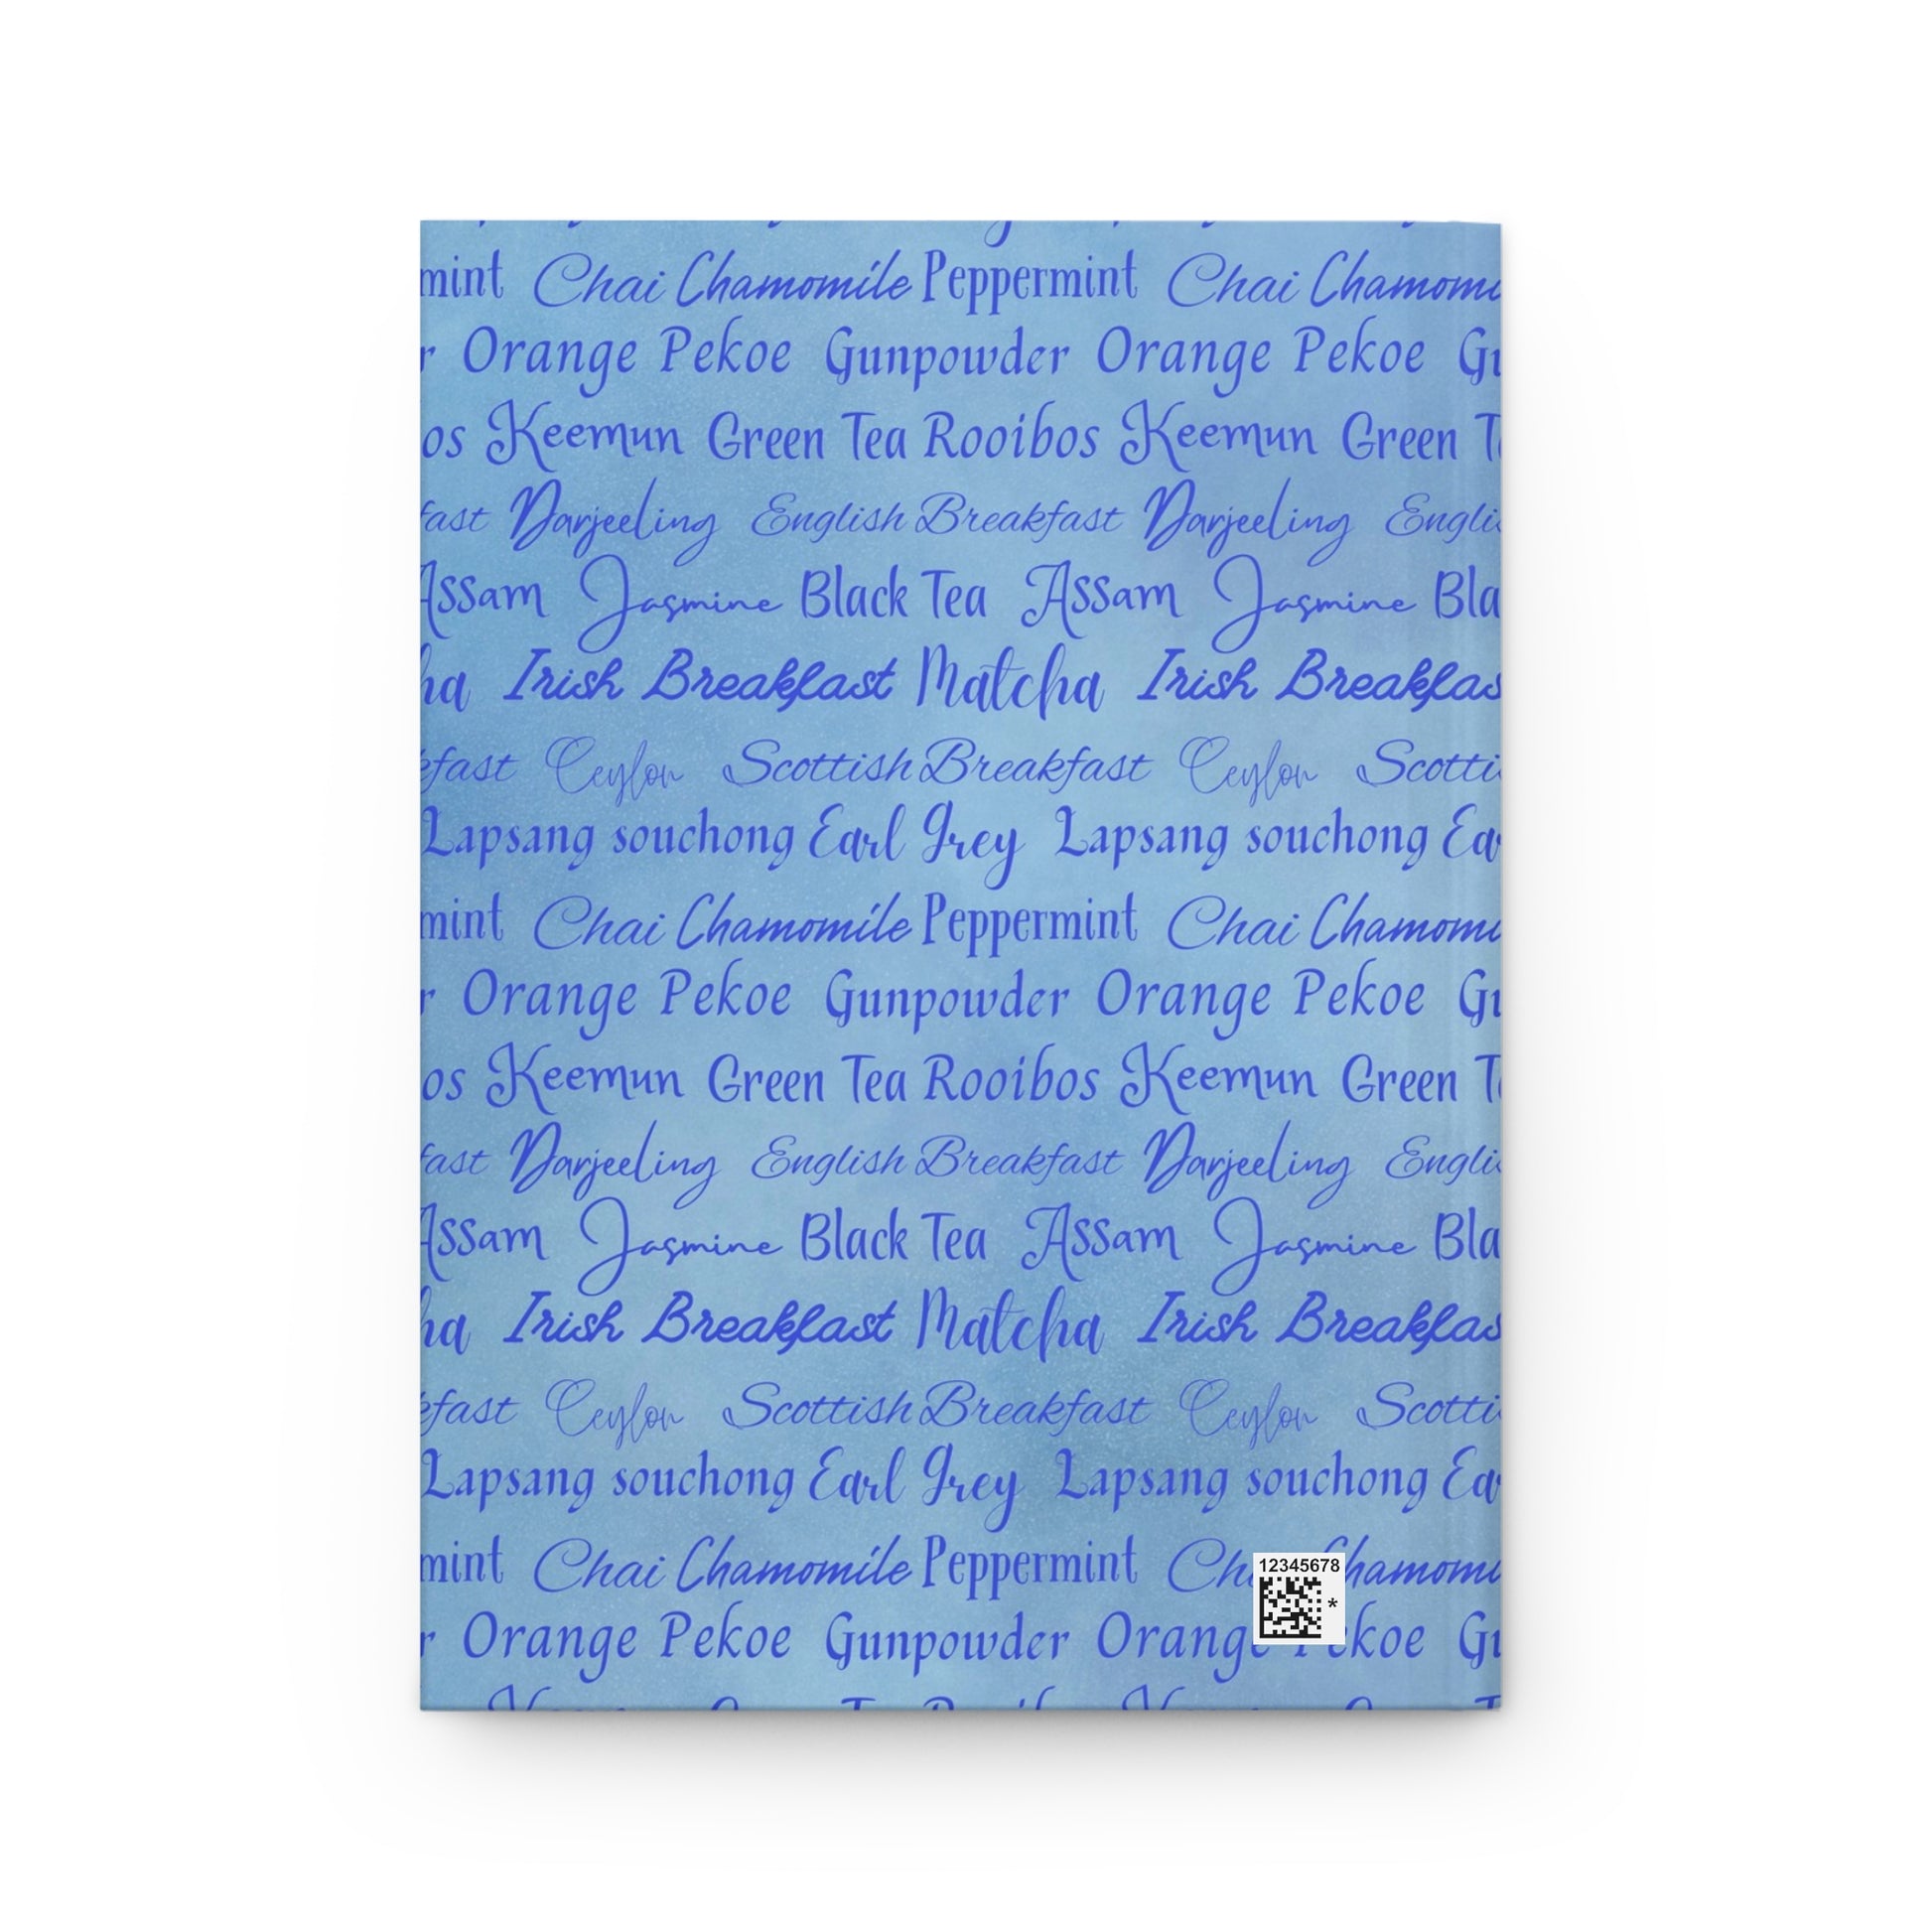 mint Chai Chamomile Peppermint Chai Chamomi
r Orange Pekoe Gunpowder Orange Pekoe Gu
os Keemun Green Tea Rooibos Keemun Green Te
fast Darjeeling English Breakfast Darjeeling Englis
Assam Jasmine Black Tea Assam Jasmine Bla
ha Irish Breakfast Matcha Irish Breakfas
kfast Ceylon Scottish Breakfast Ceylon Scottis
Lapsang souchong Earl Grey Lapsang souchong Ear
mint Chai Chamomile Peppermint Chai Chamomi
r Orange Pekoe Gunpowder Orange Pekoe Gu
os Keemun Green Tea Rooibos Keemun Green Te
fast Darjeeling English Breakfast Darjeeling Englis
Assam Jasmine Black Tea Assam Jasmine Bla
ha Irish Breakfast Matcha Irish Breakfas
kfast Ceylon Scottish Breakfast Ceylon Scottis
Lapsang souchong Earl Grey Lapsang souchong Ear
mint Chai Chamomile Peppermint Cha Chamomi
12345678
*
r Orange Pekoe Gunpowder Orange Pekoe Gu